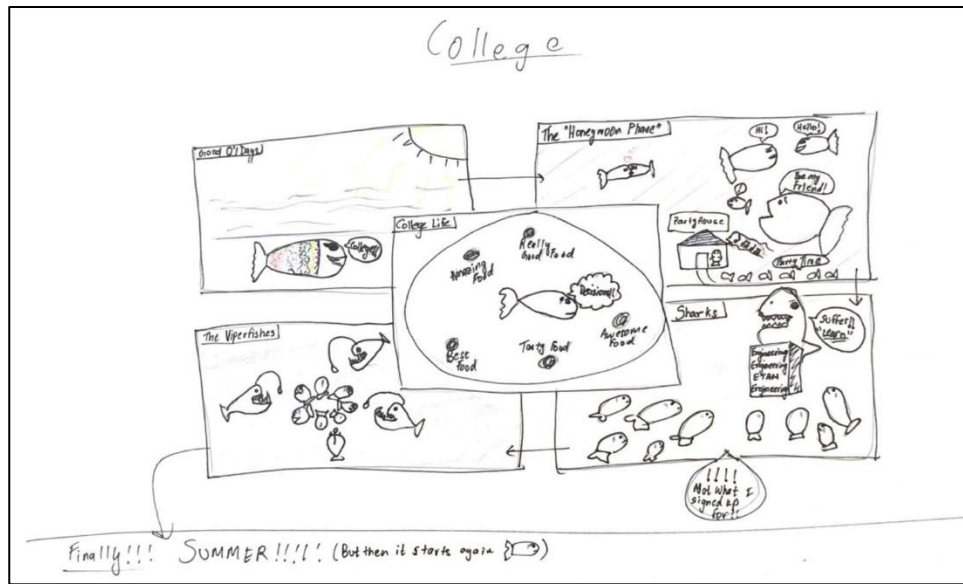 College
Good Ol' Days
College!!
The "Honeymoon Phase"
Hi!
Hello!
Be my
friend!
Party House
Party Time
College Life
Really
Good Food
Amazing
Food
Decisions!!
Awesome
Food
Tasty Food
Best
Food
Sharks
Suffer!!
"Learn"
Engineering
Engineering
ETAM
Engineering
! ! ! !
Not what I
signed up
for!!
The Viperfishes
Finally!!! SUMMER!!!!! (But then it starts again )